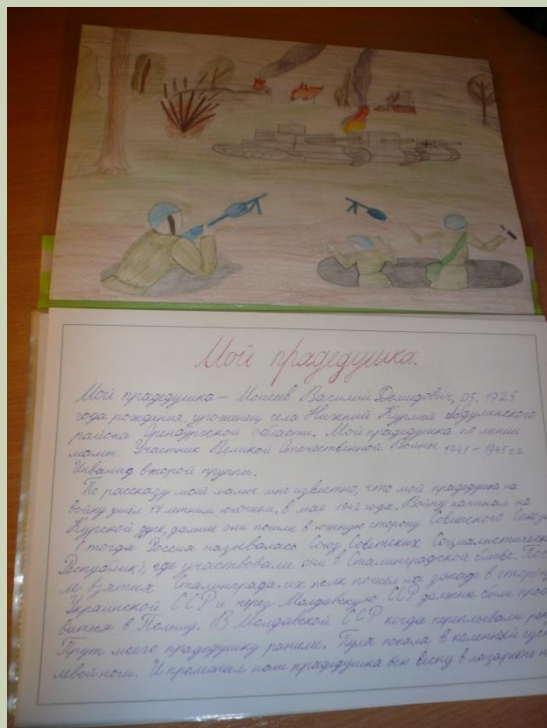 Мой прадедушка.
Мой прадедушка – Моисеев Василий Демидович, 05. 1925
года рождения, уроженец села Нижний Курмей Абдулинского
района Оренбургской области. Мой прадедушка по линии
мамы. Участник Великой Отечественной Войны 1941 – 1945 г.г
Инвалид второй группы.
По рассказу моей мамы мне известно, что мой прадедушка на
войну ушёл 17 летним юношей, в мае 1942 года. Войну начинал на
Курской дуге, дальше они пошли в южную сторону Советского Союза
(тогда Россия называлась Союз Советских Социалистических
Республик), где участвовали они в Сталинградской битве. Пос
ле взятия Сталинграда, их полк пошёл на запад в сторону
Украинской ССР и через Молдавскую ССР должны были
виться в Польшу. В Молдавской ССР когда переплывали
Прут моего прадедушку ранили. Пуля попала в коленный сустав
левой ноги. И пролежал наш прадедушка всю весну в лазарете